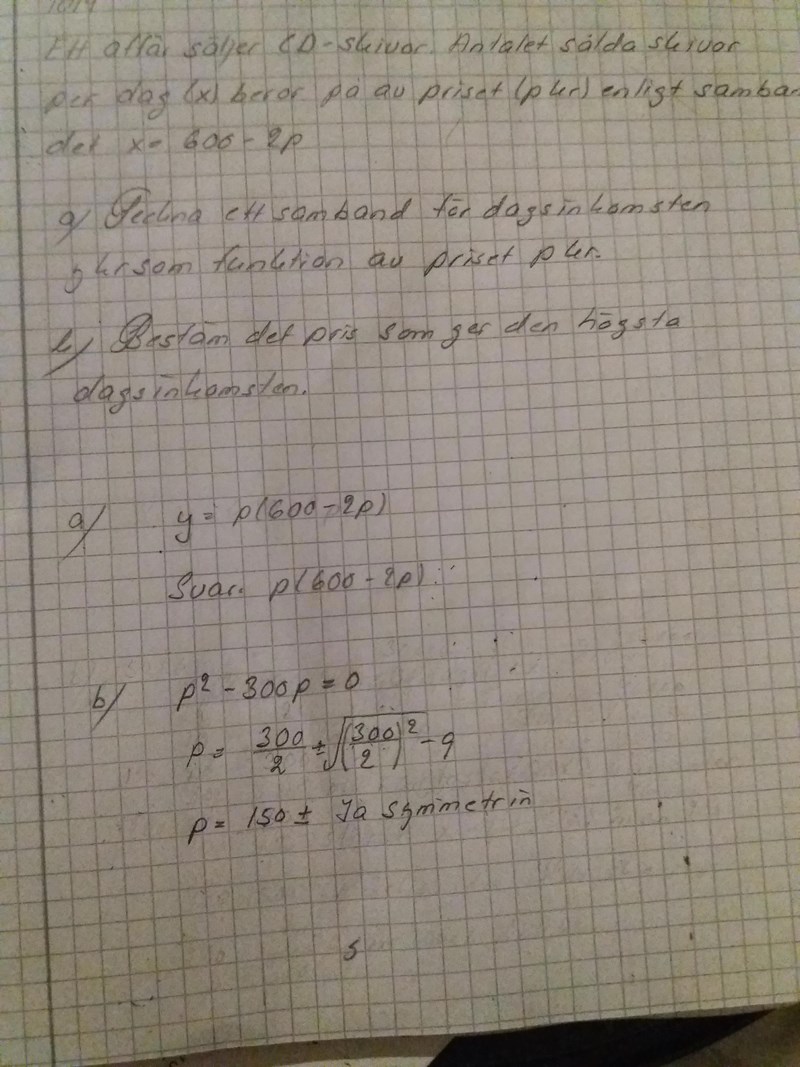 Ett affär säljer CD-skivor. Antalet sålda skivor
per dag (x) beror på av priset (p kr) enligt samban-
det x = 600 - 2p
a) Teckna ett samband för dagsinkomsten
y kr som funktion av priset p kr.
b) Bestäm det pris som ger den högsta
dagsinkomsten.
a) y = p(600 - 2p)
Svar: p(600 - 2p)
b) p² - 300p = 0
p = 300/2 ± √(300/2)² - 9
p = 150 ± Ja symmetrin
s